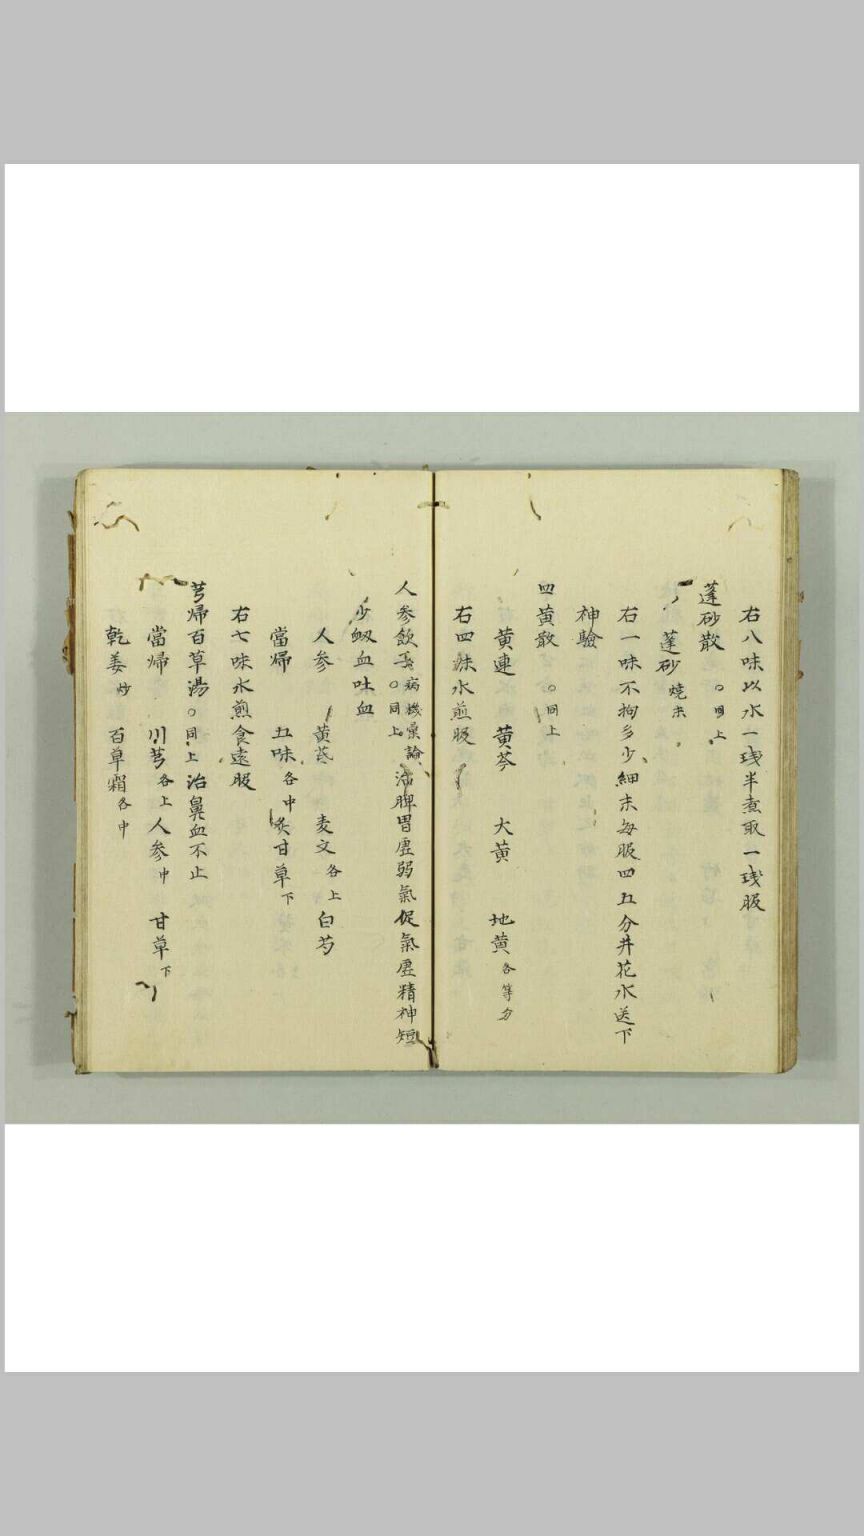 右八味以水一琖半煮取一琖服
蓬砂散 ○同上
蓬砂 燒末
右一味不拘多少細末每服四五分井花水送下
神驗
四黄散 ○同上
黄連 黄芩 大黄 地黄 各等分
右四味水煎服
人参飲子 病機彙論 ○同上 治脾胃虛弱氣促氣虛精神短
少衂血吐血
人参 黄芪 麦文 各上 白芍
當帰 五味 各中 炙甘草 下
右七味水煎食遠服
芎帰百草湯 ○同上 治鼻血不止
當帰 川芎 各上 人参 中 甘草 下
乾姜 炒 百草霜 各中